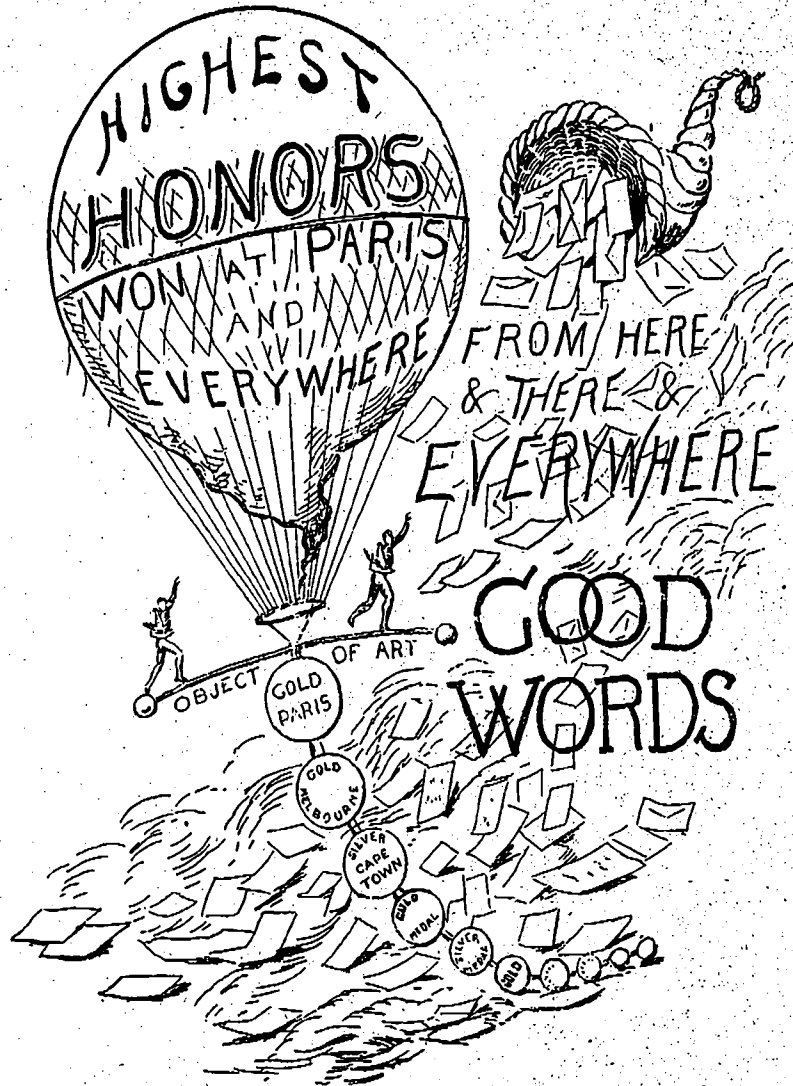 HIGHEST
HONORS
WON AT PARIS
AND
EVERYWHERE
FROM HERE
& THERE &
EVERYWHERE
GOOD
WORDS
OBJECT OF ART
GOLD
PARIS
GOLD
MELBOURNE
SILVER
CAPE
TOWN
GOLD
MEDAL
SILVER
MEDAL
GOLD